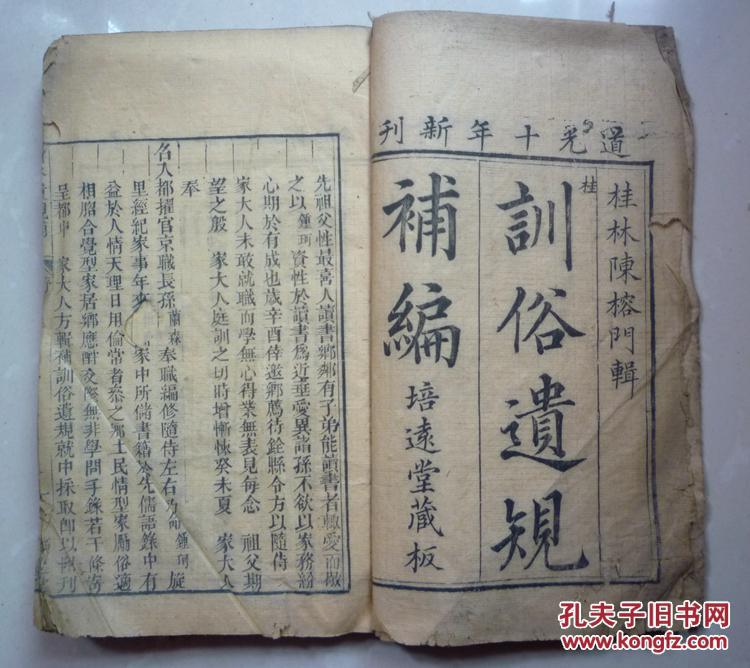 道光十年新刊
桂林陳榕門輯
桂
訓俗遺規
補編
培遠堂藏板
先祖父性最喜人讀書鄉鄰有子弟能讀書者輒愛而敬
之以鍾珂資性於讀書為近垂愛異諸孫不欲以家務紛
心期於有成也歲辛酉倖邀鄉薦待銓縣令方以隨侍
家大人未敢就職而學無心得業無表見每念 祖父期
望之殷 家大人庭訓之切時增慚悚癸未夏 家大人
奉
名入都擢官京職長孫蘭森奉職編修隨侍左右乃命鍾珂旋
里經紀家事年來 家中所儲書籍於先儒語錄中有
益於人情天理日用倫常者參之鄉土民情型家勵俗適
相脗合覺型家居鄉應酬交際無非學問手錄若干條寄
呈都中 家大人方輯補訓俗遺規就中採取即以 刊
孔夫子旧书网
www.kongfz.com